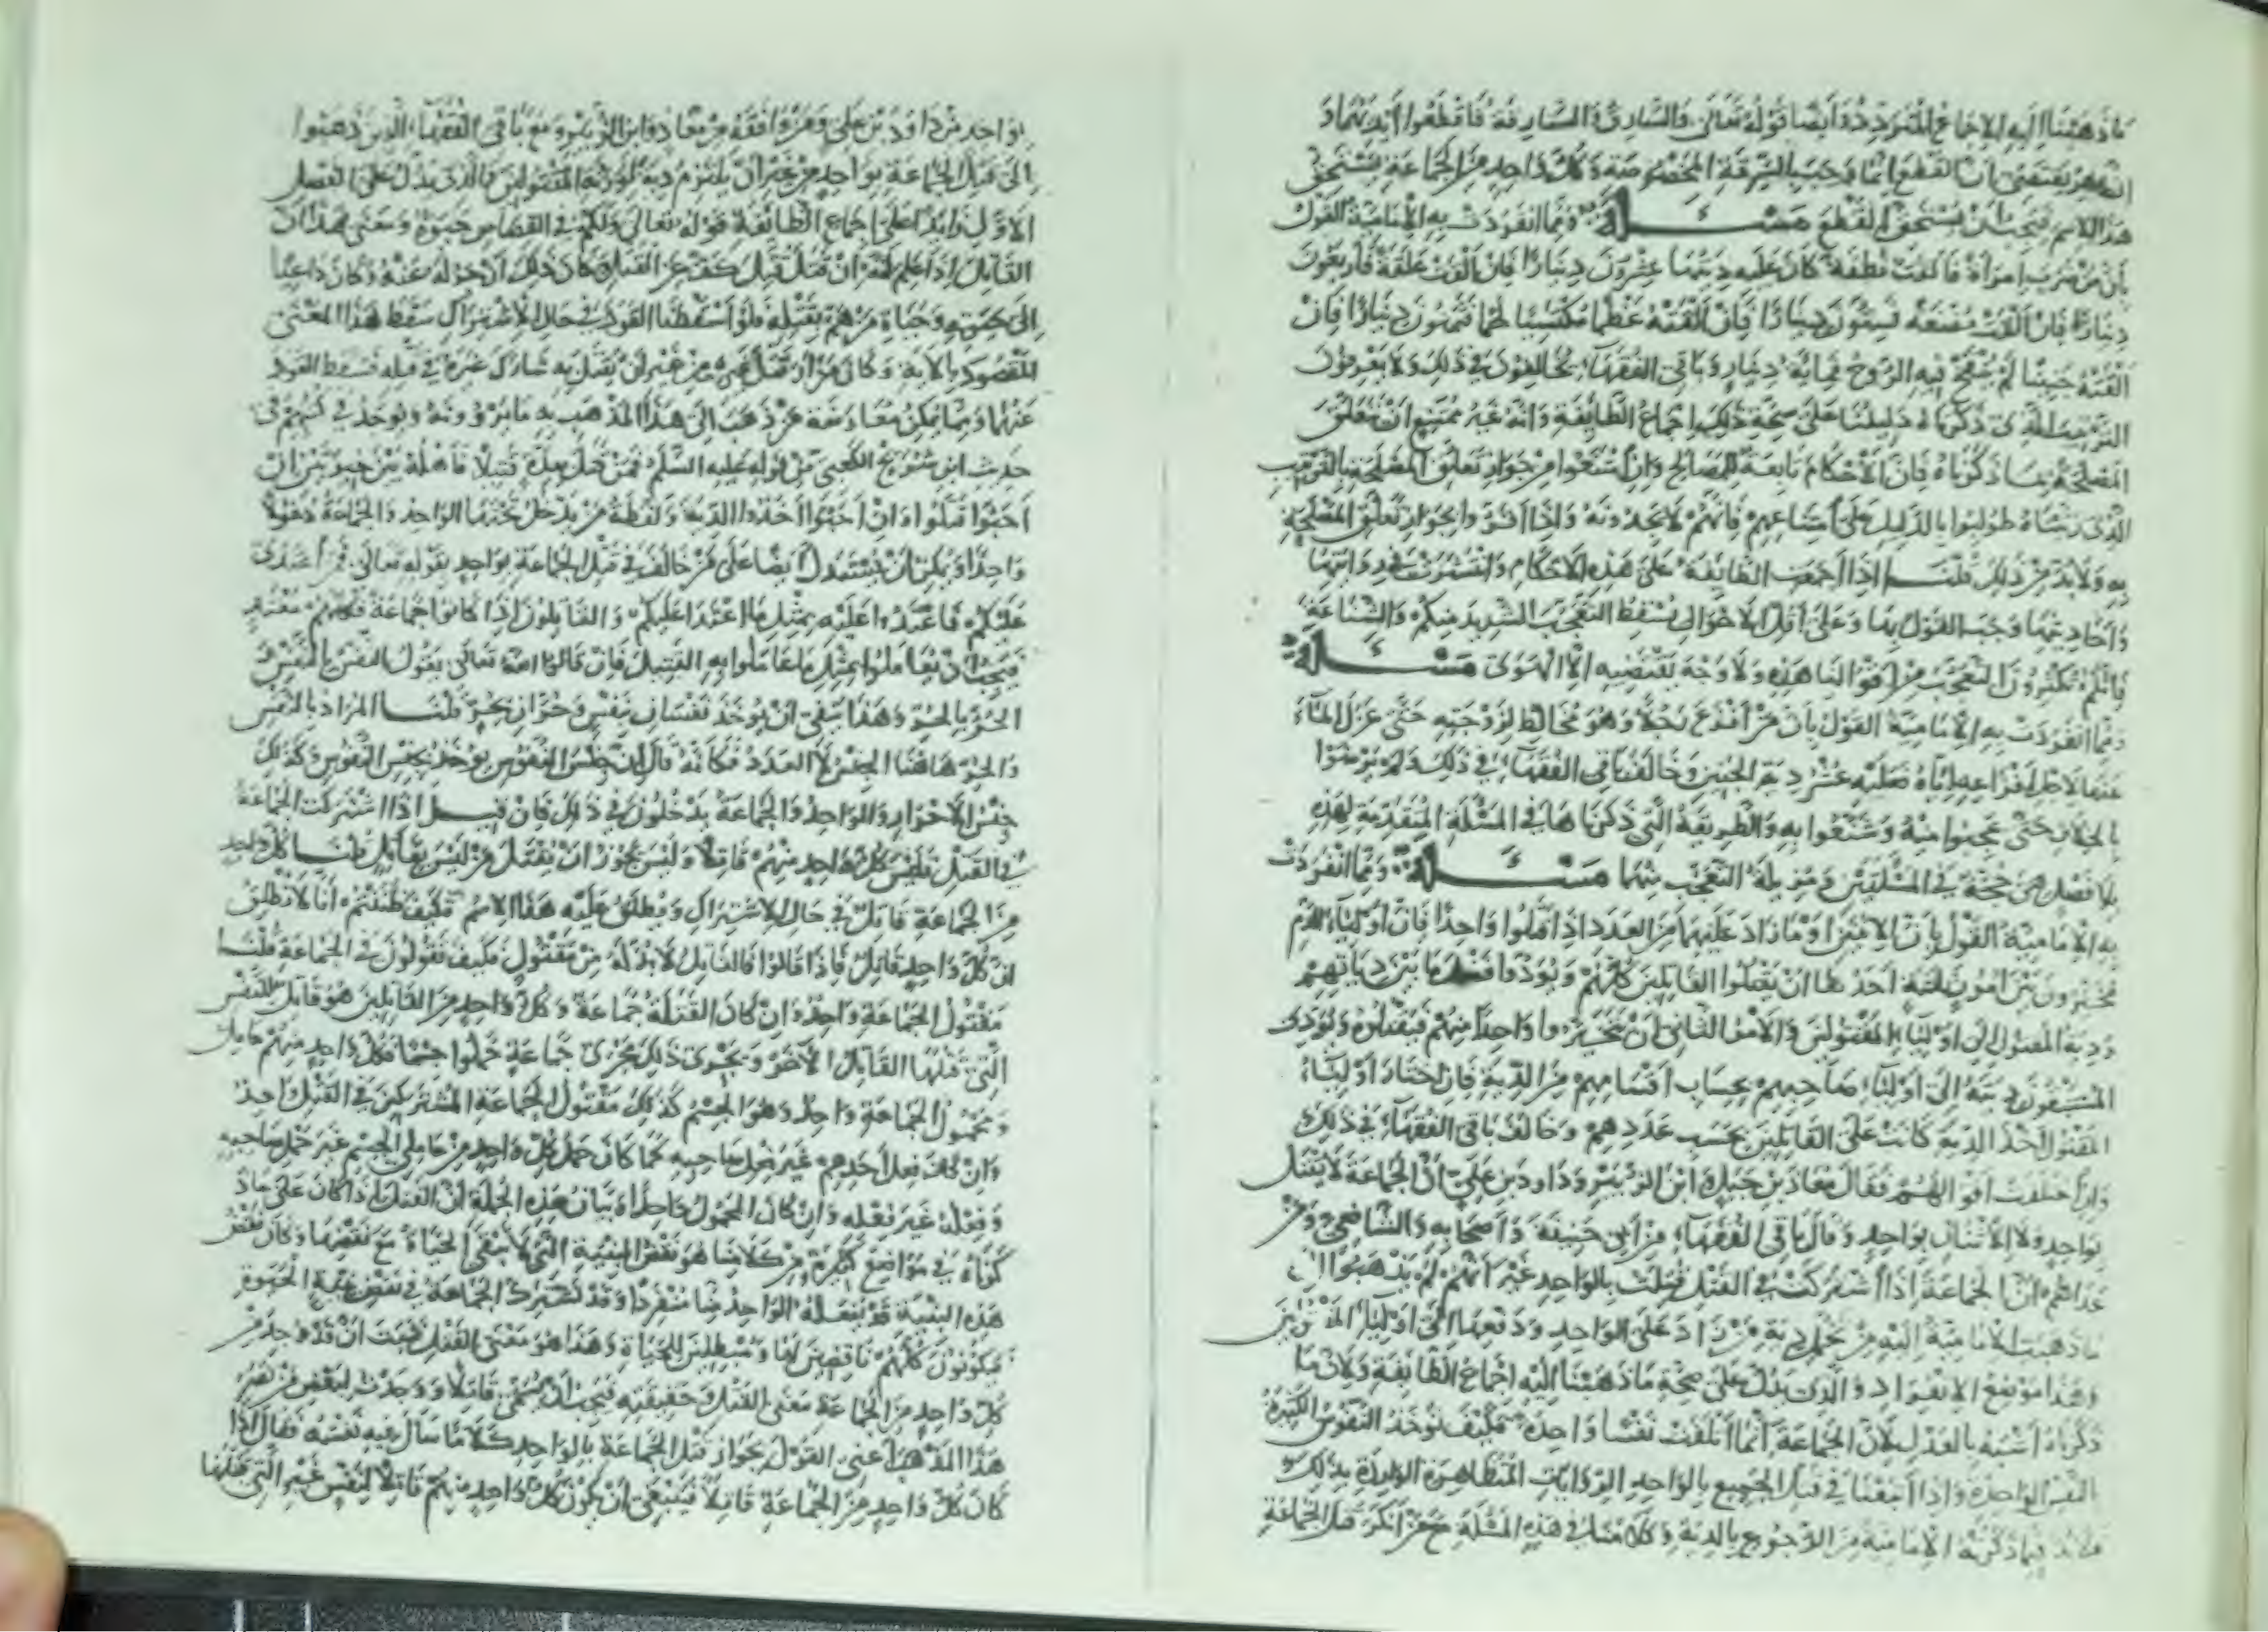 ما ذهبنا إليه الإجماع المتردد وأيضا قوله تعالى والسارق والسارقة فاقطعوا أيديهما و
الظاهر يقتضي أن القطع إنما وجب بالسرقة المخصوصة وكل واحد من الجماعة يستحق
هذا الاسم فيجب أن يستحق القطع مسئلة ومما انفردت به الإمامية القول
بأن من ضرب امرأة فألقت نطفة كان عليه ديتها عشرون دينارا فإن ألقت علقة فأربعون
دينارا فإن ألقت مضغة فستون دينارا فإن ألقته عظما مكتسيا لحما فثمانون دينارا فإن
ألقته جنينا لم ينفخ فيه الروح فمائة دينار وباقي الفقهاء يخالفون في ذلك ولا يعرفون
الترتيب الذي ذكرناه دليلنا على صحة ذلك إجماع الطائفة وأنه غير ممتنع أن تتعلق
المصلحة بما ذكرناه فإن الأحكام تابعة للمصالح وإن امتنعوا من جواز تعلق المصلحة بالترتيب
الذي رتبناه طولبوا بالدليل على امتناعهم فإنهم لا يجدونه وإذا أقروا بجواز تعلق المصلحة
به ولا بد من ذلك قلنا إذا أجمعت الطائفة على هذه الأحكام وانتشرت في رواياتها
وأحاديثها وجب القول بها وعلى أقل الأحوال يسقط التعجب الشديد منكم والشناعة
فإنكم تكثرون التعجب من أقوالنا هذه ولا وجه يقتضيه إلا الهوى مسئلة
ومما انفردت به الإمامية القول بأن من أفزع رجلا وهو مخالط لزوجته حتى عزل الماء
عنها لأجل إفزاعه إياه فعليه عشر دية الجنين وخالف باقي الفقهاء في ذلك ولم يرضوا
بالخلاف حتى عجبوا منه وشنعوا به والطريقة التي ذكرناها في المسئلة المتقدمة لهذه
بلا فصل هي حجة في المسئلتين ومزيلة التعجب منهما مسئلة ومما انفردت
به الإمامية القول بأن الاثنين وما زاد عليهما من العدد إذا قتلوا واحدا فإن أولياء الدم
مخيرون بين أمور ثلثة أحدها أن يقتلوا القاتلين كلهم ويؤدوا فضل ما بين دياتهم
ودية المقتول إلى أولياء المقتولين والأمر الثاني أن يتخيروا واحدا منهم فيقتلوه ويؤدي
المستبقون ديته إلى أولياء صاحبهم بحساب أقسامهم من الدية فإن اختار أولياء
المقتول أخذ الدية كانت على القاتلين بحسب عددهم وخالف باقي الفقهاء في ذلك
وإن اختلفت أقوالهم فقال معاذ بن جبل وابن الزبير وداود بن علي أن الجماعة لا يقتل
بواحد ولا الاثنان بواحد وقال باقي الفقهاء من أبي حنيفة وأصحابه والشافعي ومن
عداهم أن الجماعة إذا اشتركت في القتل قتلت بالواحد غير أنهم لم يذهبوا إلى
ما ذهبت الإمامية إليه من تحمل دية من زاد على الواحد ودفعها إلى أولياء المقتولين
وهذا موضع الانفراد والذي يدل على صحة ما ذهبنا إليه إجماع الطائفة ولأن ما
ذكرناه أشبه بالعدل لأن الجماعة إنما أتلفت نفسا واحدة فكيف تؤخذ النفوس الكثيرة
بالنفس الواحدة وإذا اتبعنا في قتل الجميع بالواحد الروايات المتظاهرة الواردة بذلك
فلا بد فيما ذكرته الإمامية من الرجوع بالدية وكلامنا في هذه المسئلة مع من أنكر قتل الجماعة
بواحد من داود بن علي ومن وافقه من معاذ وابن الزبير ومع باقي الفقهاء الذين ذهبوا
إلى قتل الجماعة بواحد من غير أن يلتزم دية لورثة المقتولين فالذي يدل على الفصل
الأول زائدا على إجماع الطائفة قوله تعالى ولكم في القصاص حيوة ومعنى هذا أن
القاتل إذا علم أنه إن قتل قتل كف عن القتل وكان ذلك أزجر له عنه وكان داعيا
إلى حيوته وحياة من هم بقتله فلو أسقطنا القود في حال الاشتراك سقط هذا المعنى
المقصود بالآية وكان من أراد قتل غيره من غير أن يقتل به شارك غيره في قتله فسقط القود
عنهما ومما يمكن معارضته من ذهب إلى هذا المذهب به ما يروونه ويوجد في كتبهم في
حديث ابن شريح الكعبي من قوله عليه السلم فمن قتل بعده قتيلا فأهله بين خيرتين إن
أحبوا قتلوا وإن أحبوا أخذوا الدية ولفظة من يدخل تحتها الواحد والجماعة دخولا
واحدا ويمكن أن يستدل أيضا على من خالف في قتل الجماعة بواحد بقوله تعالى فمن اعتدى
عليكم فاعتدوا عليه بمثل ما اعتدى عليكم والقاتلون إذا كانوا جماعة فكلهم معتد
فيجب أن يعاملوا بمثل ما عاملوا به القتيل فإن قالوا الله تعالى يقول النفس بالنفس
الحر بالحر وهذا ينفي أن يؤخذ نفسان بنفس وحران بحر قلنا المراد بالنفس
والحر هاهنا الجنس لا العدد فكأنه قال إن جنس النفوس يؤخذ بجنس النفوس وكذلك
جنس الأحرار والواحد والجماعة يدخلون في ذلك فإن قيل إذا اشتركت الجماعة
في القتل فليس كل واحد منهم قاتلا وليس يجوز أن يقتل من ليس بقاتل قلنا كل واحد
من الجماعة قاتل في حال الاشتراك ويطلق عليه هذا الاسم فكيف ظننتم أنا لا نطلق
أن كل واحد قاتل فإذا قالوا فالقاتل لا بد له من مقتول فكيف تقولون في الجماعة قلنا
مقتول الجماعة واحد وإن كان القتلة جماعة وكل واحد من القاتلين هو قاتل للنفس
التي قتلها القاتل الآخر ويجري ذلك مجرى جماعة حملوا جسما فكل واحد منهم حامل
ومحمول الجماعة واحد وهو الجسم كذلك مقتول الجماعة المشتركين في القتل واحد
وإن كان فعل أحدهم غير فعل صاحبه كما كان حمل كل واحد من حاملي الجسم غير حمل صاحبه
وفعله غير فعله وإن كان المحمول واحدا وبيان هذه الجملة أن القتل إذا كان على ما ذ
كرناه في مواضع كثيرة من كلامنا هو نقض البنية التي لا تبقى الحياة مع نقضها وكان نقض
هذه البنية قد يفعله الواحد منا منفردا وقد تشترك الجماعة في نقض بنية الحيوة
فيكونون كلهم ناقضين لها ومبطلين للحياة وهذا هو معنى القتل فثبت أن قد وجد من
كل واحد من الجماعة معنى القتل وحقيقته فيجب أن يسمى قاتلا ووجدت لبعض من نصر
هذا المذهب أعني القول بجواز قتل الجماعة بالواحد كلاما سأل فيه نفسه فقال إذا
كان كل واحد من الجماعة قاتلا فينبغي أن يكون كل واحد منهم قاتلا لنفس غير التي قتلها